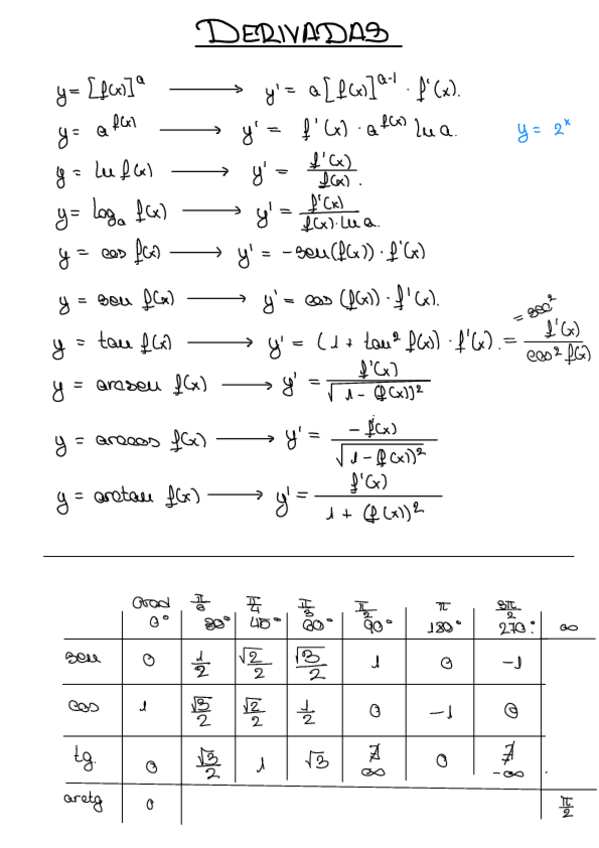 DERIVADAS
y = [f(x)]^a → y' = a[f(x)]^{a-1} · f'(x).
y = a^{f(x)} → y' = f'(x) · a^{f(x)} ln a. y = 2^x
y = ln f(x) → y' = f'(x)/f(x).
y = log_a f(x) → y' = f'(x)/(f(x)·ln a.
y = cos f(x) → y' = -sen(f(x)) · f'(x)
y = sen f(x) → y' = cos (f(x)) · f'(x).
= sec²
y = tan f(x) → y' = (1 + tan² f(x)) · f'(x). = f'(x)/cos² f(x)
y = arcsen f(x) → y' = f'(x)/√(1 - (f(x))²
y = arccos f(x) → y' = -f'(x)/√(1 - (f(x))²
y = arctan f(x) → y' = f'(x)/(1 + (f(x))²
0rad π/6 π/4 π/3 π/2 π 3π/2
0° 30° 45° 60° 90° 180° 270° ∞
sen 0 1/2 √2/2 √3/2 1 0 -1
cos 1 √3/2 √2/2 1/2 0 -1 0
tg. 0 √3/2 1 √3 ∄ ∞ 0 ∄ -∞
arctg 0 π/2